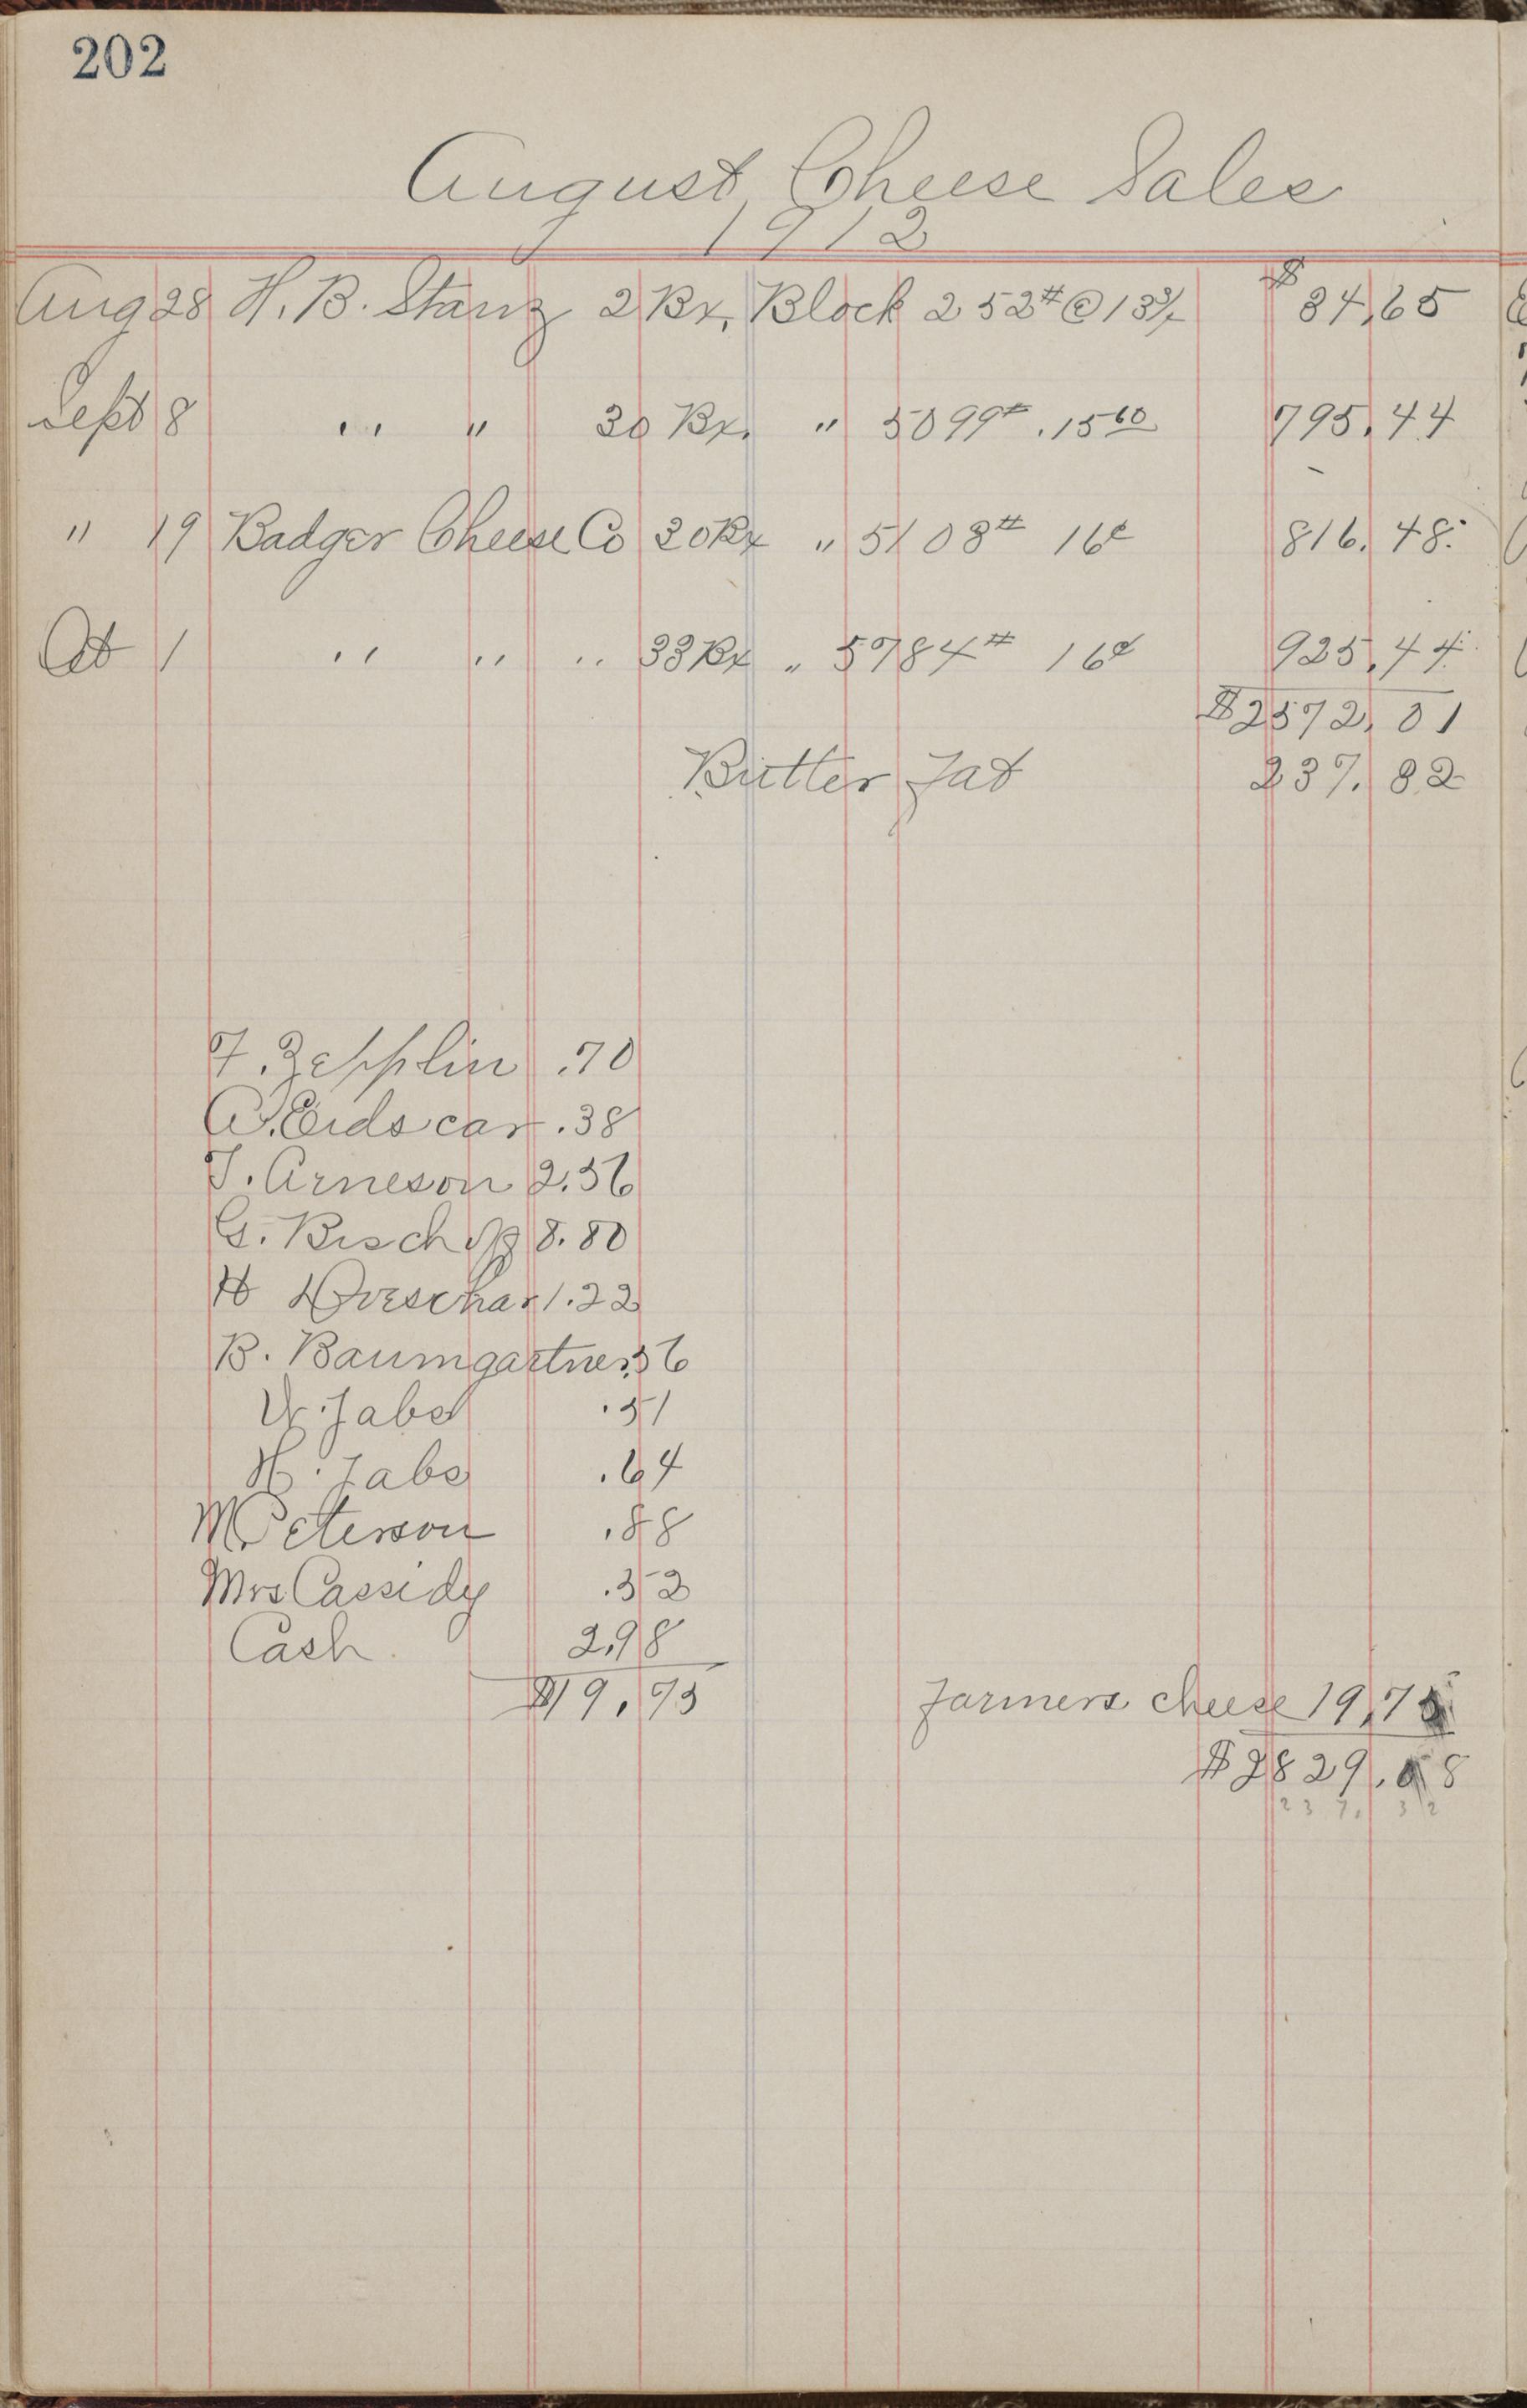 202
August Cheese Sales
1912
Aug 28 H. B. Stanz 2 Bx, Block 252# @ 13¾ $34,65
Sept 8 " " 30 Bx. " 5099# .15 60 795.44
" 19 Badger Cheese Co 30 Bx " 5103# 16¢ 816.48
Oct 1 " " " 33 Bx " 5784# 16¢ 925.44
$2572.01
Butter fat 237.32
F. Zepplin .70
A. Erdscar .38
T. Arneson 2.56
G. Bischoff 8.80
H Dreschar 1.22
B. Baumgartner .56
W. Jabs .51
H. Jabs .64
M. Peterson .88
Mrs Cassidy .52
Cash 2.98
$19.75
Farmers cheese 19.75
$2829.08
237.32